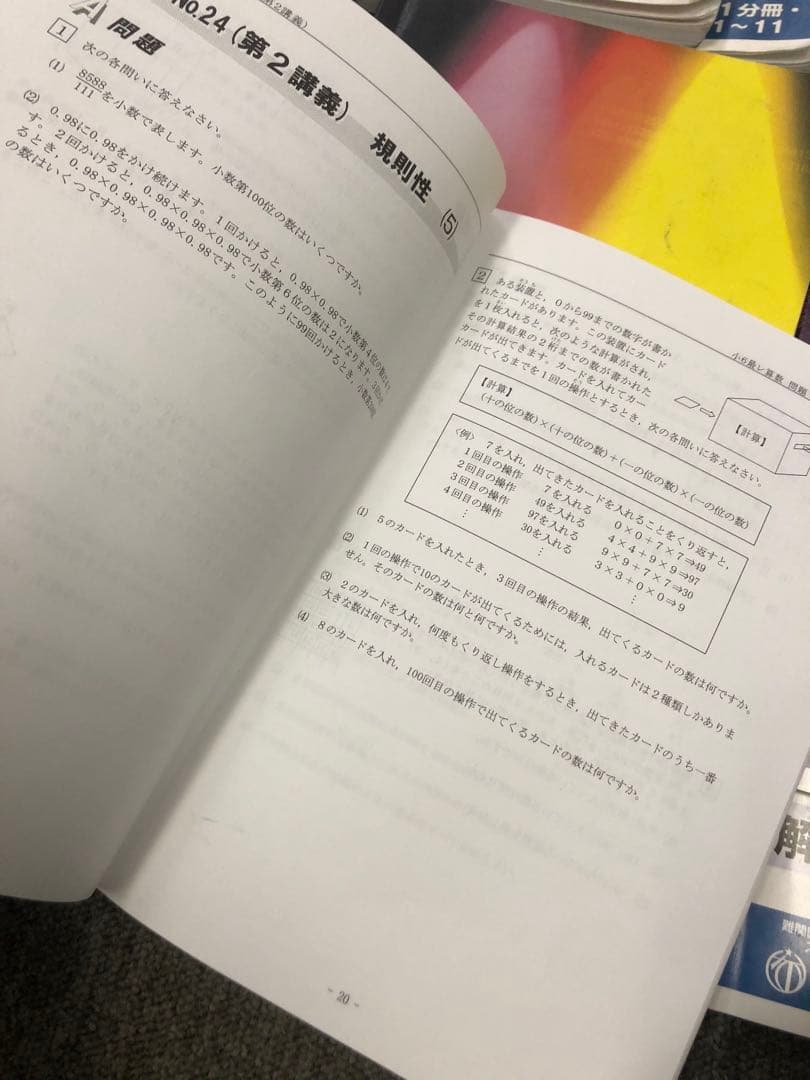 第2講義)
No.24(第2講義) 規則性 (5)
A 問題
1 次の各問いに答えなさい。
(1) 8588/111を小数で表します。小数第100位の数はいくつですか。
(2) 0.98に0.98をかけ続けます。1回かけると,0.98×0.98で小数第4位の数は4
す。2回かけると,0.98×0.98×0.98で小数第6位の数は2になります。3回
るとき,0.98×0.98×0.98×0.98です。このように99回かけるとき,小数第
の数はいくつですか。
小6最レ算数 問題
2 ある装置と,0から99までの数字が書か
れたカードがあります。この装置にカード
を1枚入れると,次のような計算がされ,
その計算結果の2桁までの数が書かれた
カードが出てきます。カードを入れてカー
ドが出てくるまでを1回の操作とするとき,次の各問いに答えなさい。
【計算】
【計算】
(十の位の数)×(十の位の数)+(一の位の数)×(一の位の数)
〈例〉 7を入れ,出てきたカードを入れることをくり返すと,
1回目の操作 7を入れる 0×0+7×7⇒49
2回目の操作 49を入れる 4×4+9×9⇒97
3回目の操作 97を入れる 9×9+7×7⇒30
4回目の操作 30を入れる 3×3+0×0⇒9
⋮ ⋮ ⋮
(1) 5のカードを入れたとき,3回目の操作の結果,出てくるカードの数は何ですか。
(2) 1回の操作で10のカードが出てくるためには,入れるカードは2種類しかありま
せん。そのカードの数は何と何ですか。
(3) 2のカードを入れ,何度もくり返し操作をするとき,出てきたカードのうち一番
大きな数は何ですか。
(4) 8のカードを入れ,100回目の操作で出てくるカードの数は何ですか。
- 20 -
1分冊・
1～11
解
難関